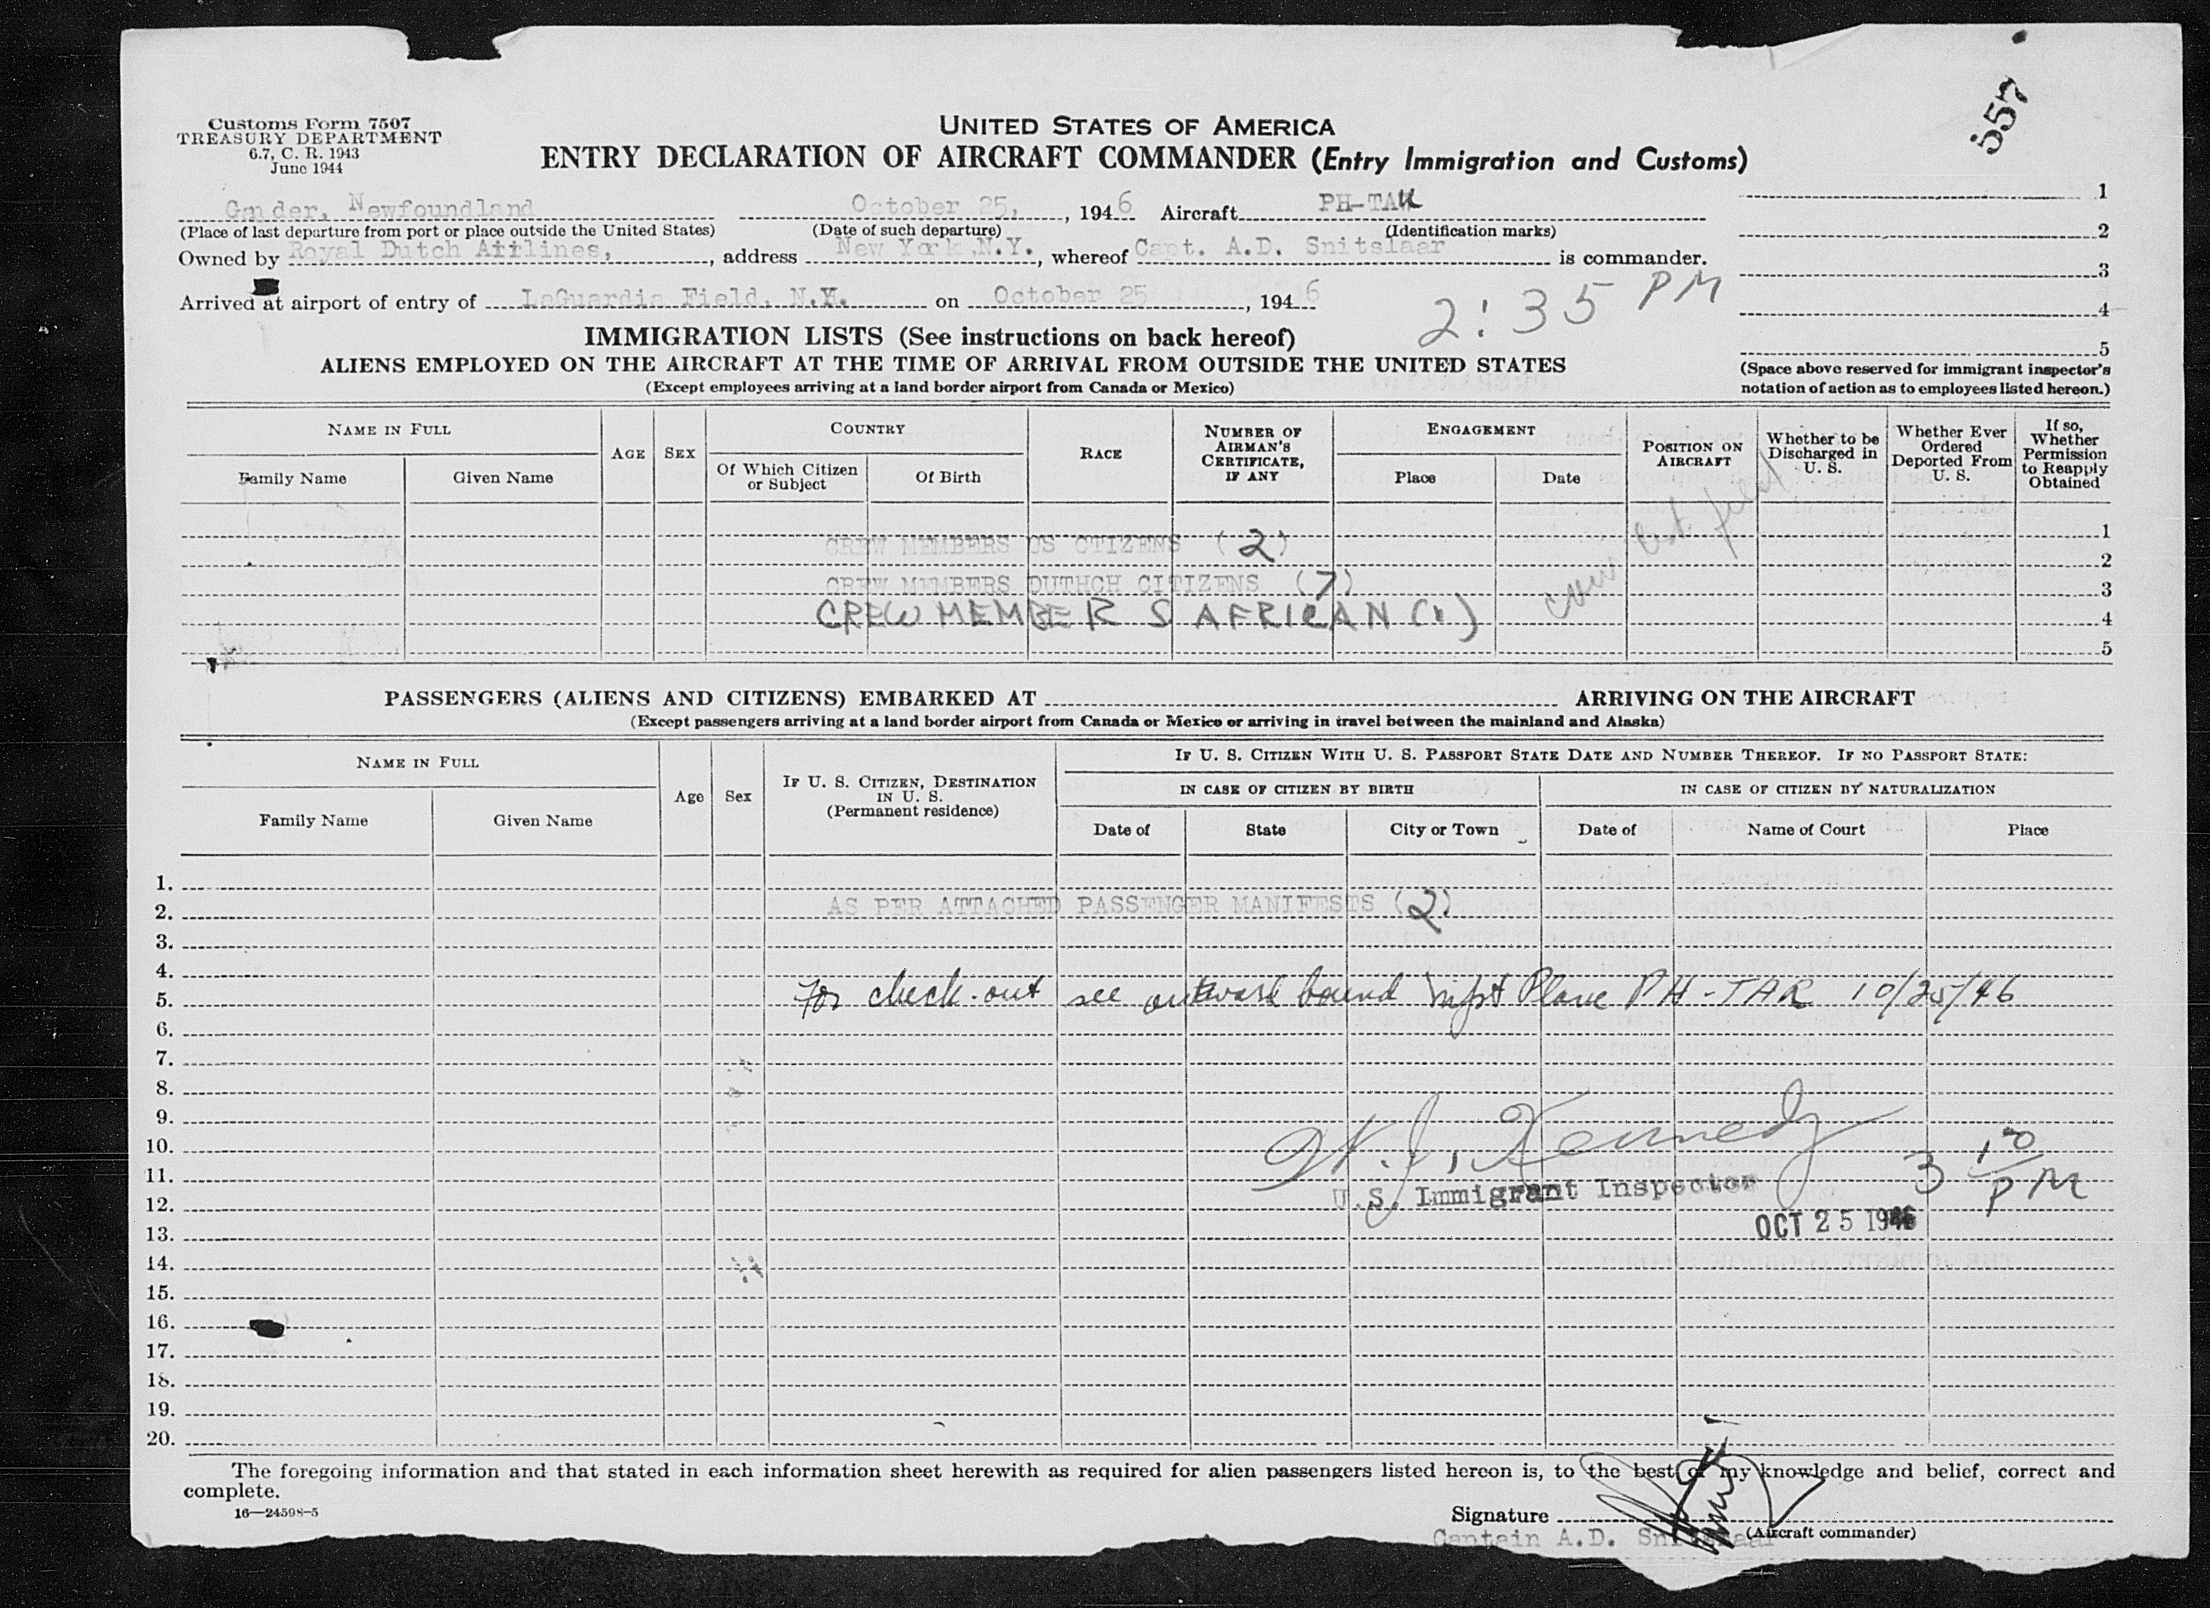 557
Customs Form 7507
TREASURY DEPARTMENT
6.7, C. R. 1943
June 1944
UNITED STATES OF AMERICA
ENTRY DECLARATION OF AIRCRAFT COMMANDER (Entry Immigration and Customs)
Gander, Newfoundland October 25, , 1946 Aircraft PH-TAR
(Place of last departure from port or place outside the United States) (Date of such departure) (Identification marks)
Owned by Royal Dutch Airlines, , address New York ,N.Y. , whereof Capt. A.D. Snitslaar is commander.
Arrived at airport of entry of LaGuardia Field, N.Y. on October 25 , 1946
2:35 PM
1
2
3
4
5
(Space above reserved for immigrant inspector's
notation of action as to employees listed hereon.)
IMMIGRATION LISTS (See instructions on back hereof)
ALIENS EMPLOYED ON THE AIRCRAFT AT THE TIME OF ARRIVAL FROM OUTSIDE THE UNITED STATES
(Except employees arriving at a land border airport from Canada or Mexico)
NAME IN FULL
Family Name Given Name
AGE SEX
COUNTRY
Of Which Citizen or Subject
Of Birth
RACE
NUMBER OF AIRMAN'S CERTIFICATE, IF ANY
ENGAGEMENT
Place Date
POSITION ON AIRCRAFT
Whether to be Discharged in U. S.
Whether Ever Ordered Deported From U. S.
If so, Whether Permission to Reapply Obtained
1
CREW MEMBERS US CTIZENS (2)
2
CREW MEMBERS DUTHCH CITIZENS (7)
3
CREW MEMBER S AFRICAN (1)
4
5
PASSENGERS (ALIENS AND CITIZENS) EMBARKED AT ARRIVING ON THE AIRCRAFT
(Except passengers arriving at a land border airport from Canada or Mexico or arriving in travel between the mainland and Alaska)
NAME IN FULL
Family Name Given Name
Age Sex
IF U. S. CITIZEN, DESTINATION IN U. S.
(Permanent residence)
IF U. S. CITIZEN WITH U. S. PASSPORT STATE DATE AND NUMBER THEREOF. IF NO PASSPORT STATE:
IN CASE OF CITIZEN BY BIRTH IN CASE OF CITIZEN BY NATURALIZATION
Date of State City or Town Date of Name of Court Place
1.
2. AS PER ATTACHED PASSENGER MANIFESTS (2)
3.
4.
5. For check-out see outward bound mfst Plane PH-TAR 10/25/46
6.
7.
8.
9.
10. W. J. Kennedy 3 10 PM
11.
12. U.S. Immigrant Inspector
13. OCT 25 1946
14.
15.
16.
17.
18.
19.
20.
The foregoing information and that stated in each information sheet herewith as required for alien passengers listed hereon is, to the best of my knowledge and belief, correct and
complete.
16—24598-5
Signature
(Aircraft commander)
Captain A.D. Snitslaar